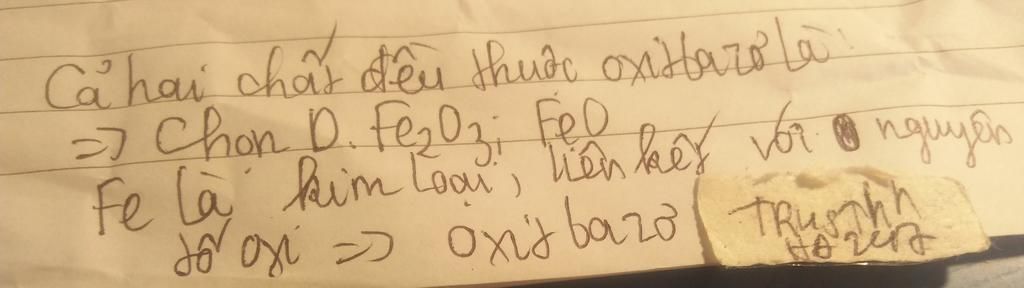 Cả hai chất đều thuộc oxit bazơ là:
=> Chọn D. Fe2O3; FeO
Fe là kim loại, liên kết với nguyên
tố oxi => oxit bazơ